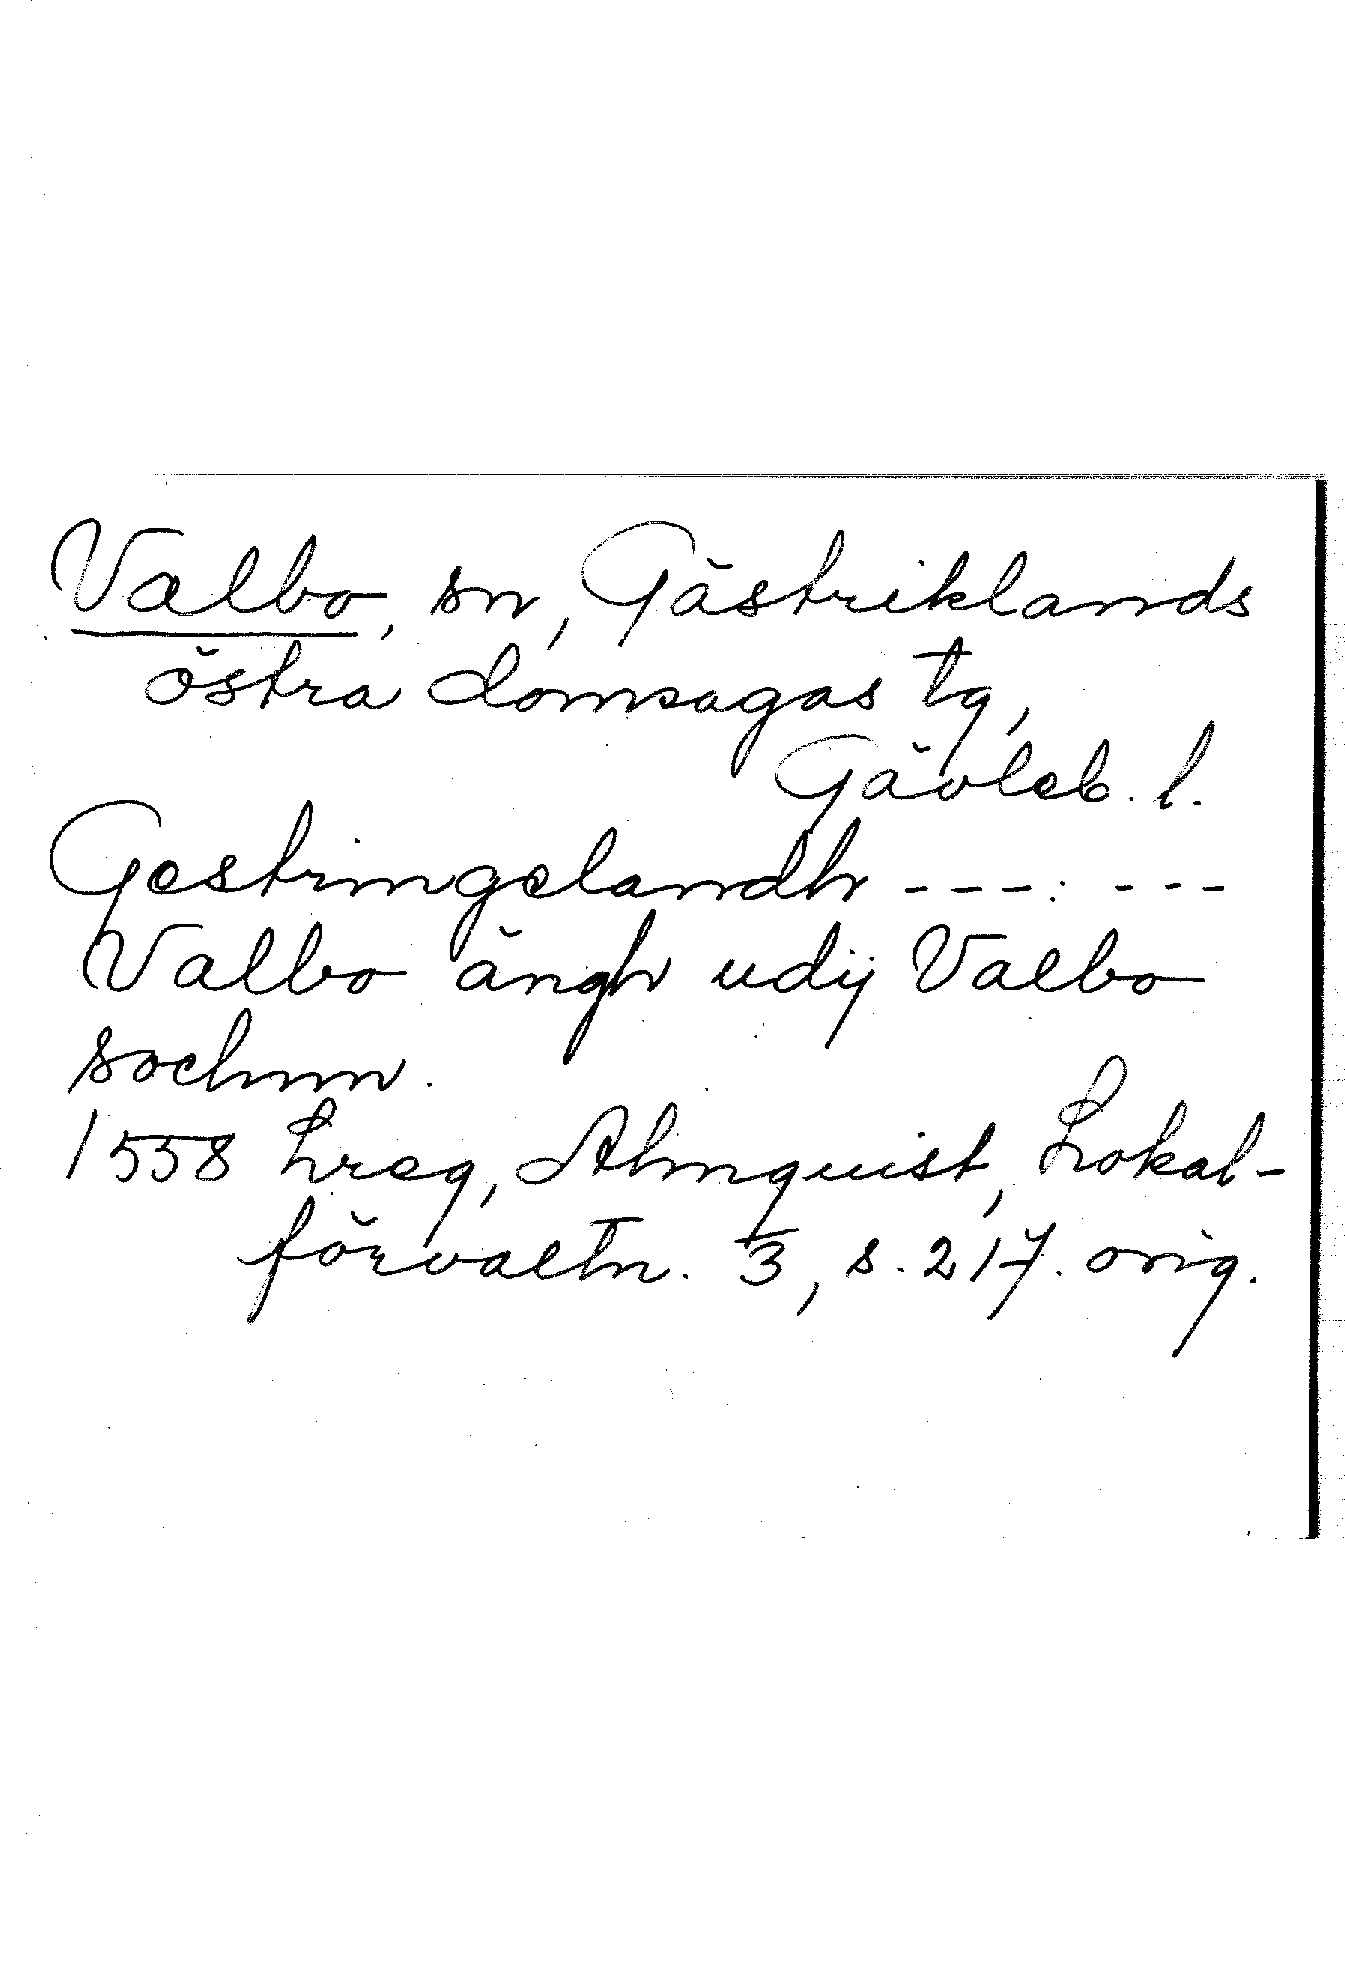 Valbo, sn, Gästriklands
östra domsagas tg,
Gävleb. l.
Gestringelandh ---: ---
Valbo ängh udij Valbo
sochnn.
1558 Lreg, Almquist, Lokal-
förvaltn. 3, s. 217. orig.